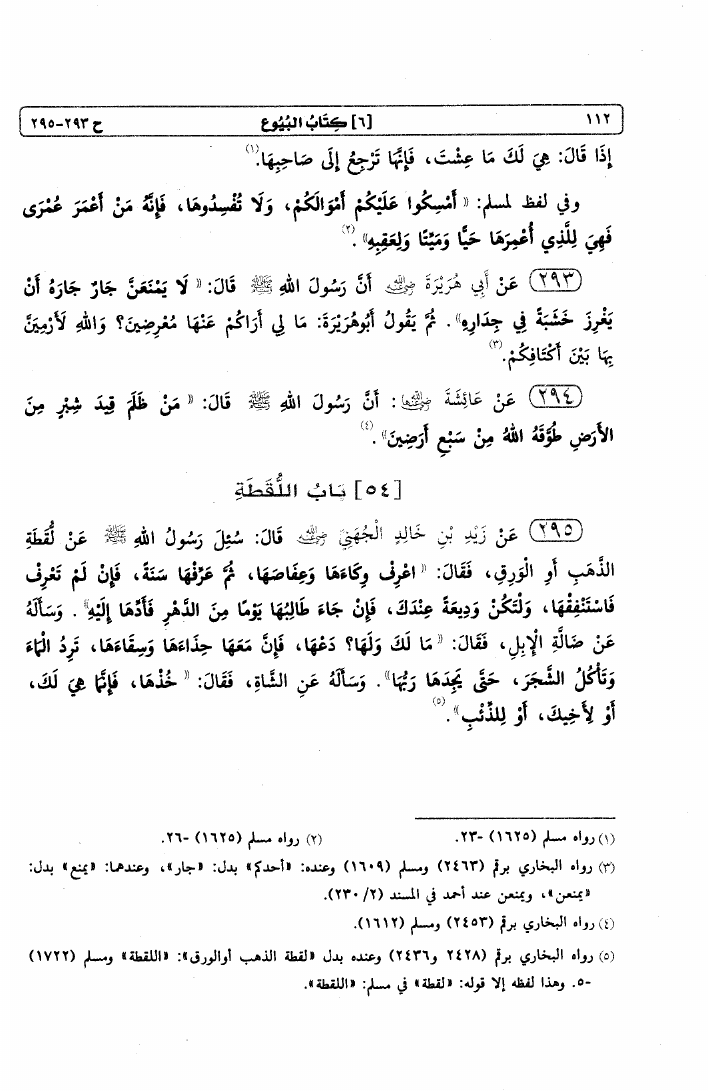 ١١٢ [٦] كِتَابُ البُيُوع ح ٢٩٣-٢٩٥
إِذَا قَالَ: هِيَ لَكَ مَا عِشْتَ، فَإِنَّهَا تَرْجِعُ إِلَى صَاحِبِهَا.(١)
وفي لفظ لمسلم: «أَمْسِكُوا عَلَيْكُمْ أَمْوَالَكُمْ، وَلَا تُفْسِدُوهَا، فَإِنَّهُ مَنْ أَعْمَرَ عُمْرَى
فَهِيَ لِلَّذِي أُعْمِرَهَا حَيًّا وَمَيِّتًا وَلِعَقِبِهِ».(٢)
(٢٩٣) عَنْ أَبِي هُرَيْرَةَ رضي الله عنه أَنَّ رَسُولَ اللهِ ﷺ قَالَ: «لَا يَمْنَعَنَّ جَارٌ جَارَهُ أَنْ
يَغْرِزَ خَشَبَةً فِي جِدَارِهِ». ثُمَّ يَقُولُ أَبُوهُرَيْرَةَ: مَا لِي أَرَاكُمْ عَنْهَا مُعْرِضِينَ؟ وَاللهِ لَأَرْمِيَنَّ
بِهَا بَيْنَ أَكْتَافِكُمْ.(٣)
(٢٩٤) عَنْ عَائِشَةَ رضي الله عنها: أَنَّ رَسُولَ اللهِ ﷺ قَالَ: «مَنْ ظَلَمَ قِيدَ شِبْرٍ مِنَ
الأَرْضِ طُوِّقَهُ اللهُ مِنْ سَبْعِ أَرَضِينَ».(٤)
[٥٤] بَابُ اللُّقَطَةِ
(٢٩٥) عَنْ زَيْدِ بْنِ خَالِدٍ الْجُهَنِيِّ رضي الله عنه قَالَ: سُئِلَ رَسُولُ اللهِ ﷺ عَنْ لُقَطَةِ
الذَّهَبِ أَوِ الْوَرِقِ، فَقَالَ: «اعْرِفْ وِكَاءَهَا وَعِفَاصَهَا، ثُمَّ عَرِّفْهَا سَنَةً، فَإِنْ لَمْ تَعْرِفْ
فَاسْتَنْفِقْهَا، وَلْتَكُنْ وَدِيعَةً عِنْدَكَ، فَإِنْ جَاءَ طَالِبُهَا يَوْمًا مِنَ الدَّهْرِ فَأَدِّهَا إِلَيْهِ». وَسَأَلَهُ
عَنْ ضَالَّةِ الْإِبِلِ، فَقَالَ: «مَا لَكَ وَلَهَا؟ دَعْهَا، فَإِنَّ مَعَهَا حِذَاءَهَا وَسِقَاءَهَا، تَرِدُ الْمَاءَ
وَتَأْكُلُ الشَّجَرَ، حَتَّى يَجِدَهَا رَبُّهَا». وَسَأَلَهُ عَنِ الشَّاةِ، فَقَالَ: «خُذْهَا، فَإِنَّمَا هِيَ لَكَ،
أَوْ لِأَخِيكَ، أَوْ لِلذِّئْبِ».(٥)
(١) رواه مسلم (١٦٢٥) -٢٣. (٢) رواه مسلم (١٦٢٥) -٢٦.
(٣) رواه البخاري برقم (٢٤٦٣) ومسلم (١٦٠٩) وعنده: «أحدكم» بدل: «جار»، وعندهما: «يمنع» بدل:
«يمنعن»، ويمنعن عند أحمد في المسند (٢/ ٢٣٠).
(٤) رواه البخاري برقم (٢٤٥٣) ومسلم (١٦١٢).
(٥) رواه البخاري برقم (٢٤٢٨ و٢٤٣٦) وعنده بدل «لقطة الذهب أوالورق»: «اللقطة» ومسلم (١٧٢٢)
-٥. وهذا لفظه إلا قوله: «لقطة» في مسلم: «اللقطة».